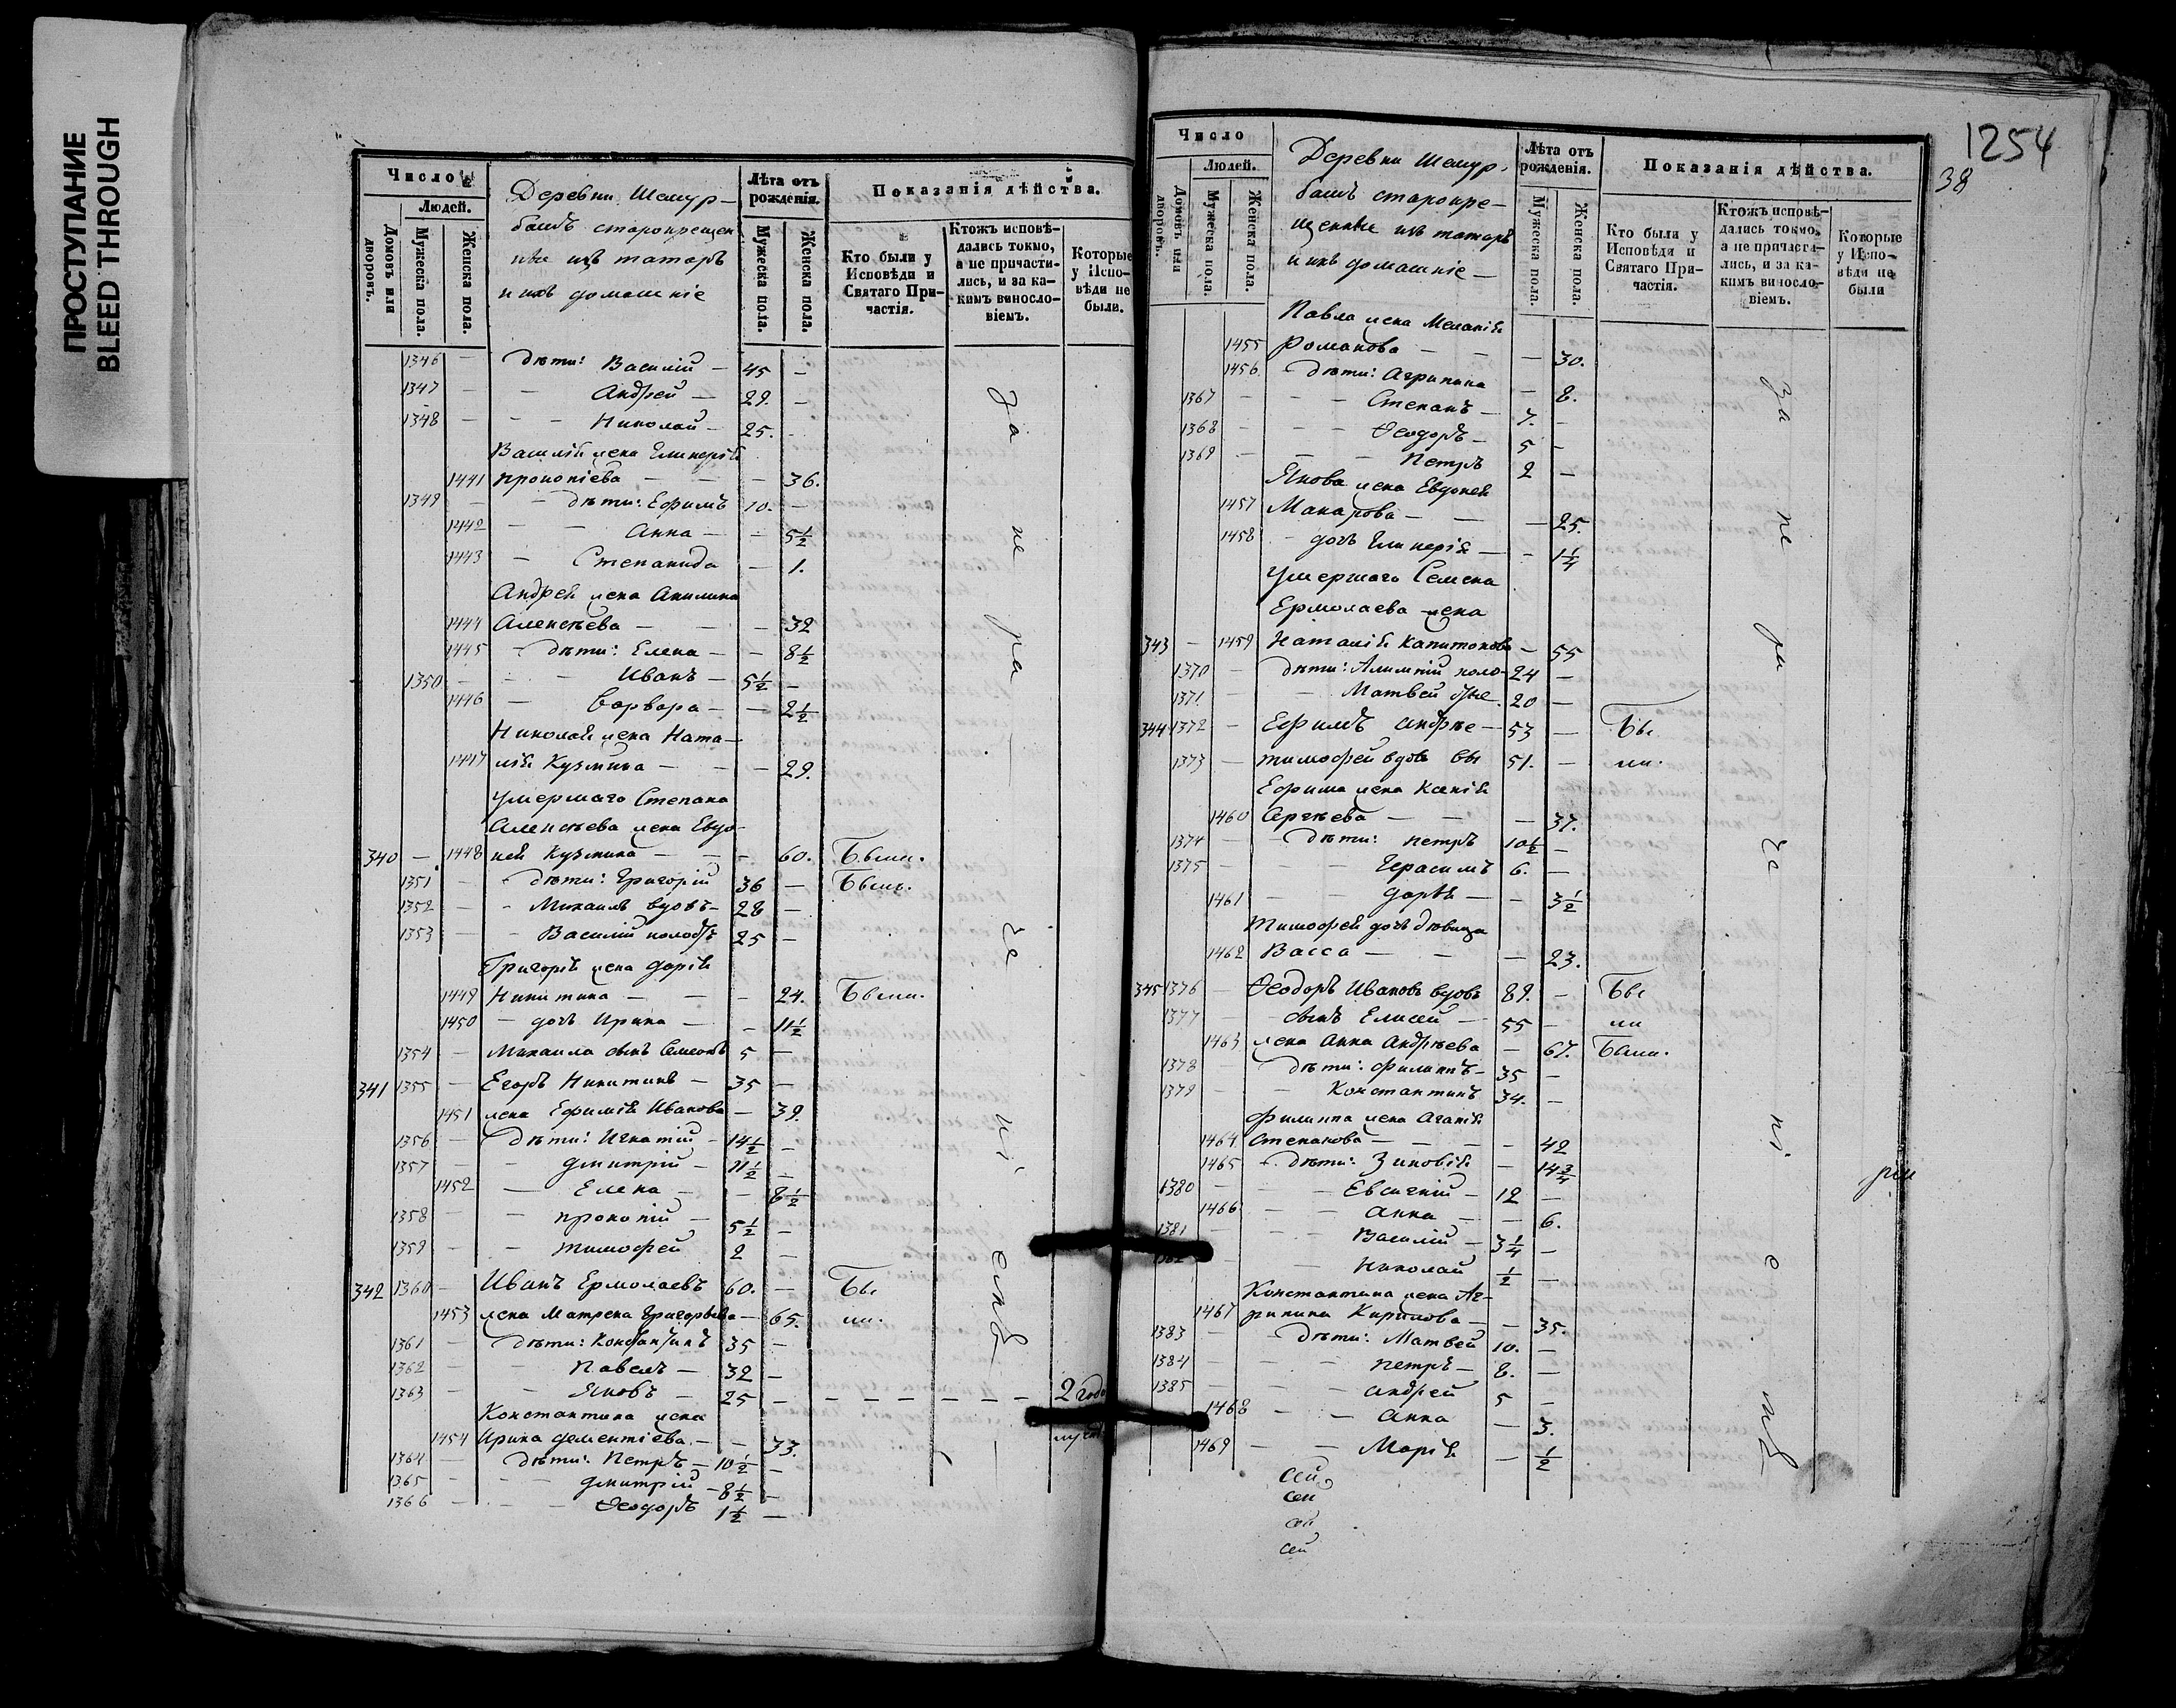 ПРОСТУПАНИЕ
BLEED THROUGH
Число
Людей.
Домовъ или дворовъ.
Мужеска пола.
Женска пола.
Деревни Шемур-
башъ старокрещен
ные изъ татаръ
и ихъ домашніе
Лѣта отъ рожденія.
Мужеска пола.
Женска пола.
Показанія дѣйства.
Кто были у Исповѣди и Святаго Причастія.
Ктожъ исповѣдались токмо, а не причастились, и за какимъ винословіемъ.
Которые у Исповѣди не были.
1346 — дѣти: Василій — 45 —
1347 — — Андрей — 29. —
1348 — — — Николай — 25. —
Василія жена Гликерія
1441 Прокопіева — — — 36.
1349 — — дѣти: Ефимъ 10. —
1442 — — Анна — — 5½
1443 — Степанида — 1.
Андрея жена Акилина
1444 Алексѣева — — — 32
1445 — дѣти: Елена — — 8½
1350 — — — Иванъ — 5½ —
1446 — Варвара — — 2½
Николая жена Ната-
1447 лія Кузмина — — — 29.
умершаго Степана
Алексѣева жена Евдо-
340 — 1448 кія Кузмина — — — 60. Были.
1351 — — дѣти: Григорій 36 — Былъ.
1352 — — Михаилъ вдовъ — 28 —
1353 — — Василій холостъ 25 —
Григорія жена Дарія
1449 Никитина — — — 24. Были.
1450 — дочь Ирина — — 11½
1354 — Михаила сынъ Семенъ 5 —
341 1355 — Егоръ Никитинъ — 35 —
1451 жена Ефимія Иванова — 39.
1356 — дѣти: Игнатій — 14½ —
1357 — — Дмитрій — 11½ —
1452 — Елена — — 8½
1358 — — Прокопій — 5½ —
1359 — — Тимофей 2 —
342 1360 — Иванъ Ермолаевъ 60. — Бы
1453 жена Матрена Григорьева — 65. ли.
1361 — дѣти: Константинъ 35 —
1362 — — Павелъ — 32 —
1363 — — Яковъ — 25 — — — — — — — 2 года
Константина жена
1454 Ирина Дементіева — — 33.
1364 — дѣти: Петръ — 10½ —
1365 — — — Дмитрій — 8½ —
1366 — — — Ѳеодоръ 1½ —
за не ра — че ні емъ
1254
38
Число
Людей.
Домовъ или дворовъ.
Мужеска пола.
Женска пола.
Деревни Шемур-
башъ старокре-
щенные изъ татаръ
и ихъ домашніе —
Лѣта отъ рожденія.
Мужеска пола.
Женска пола.
Показанія дѣйства.
Кто были у Исповѣди и Святаго Причастія.
Ктожъ исповѣдались токмо, а не причастились, и за какимъ винословіемъ.
Которые у Исповѣди не были
Павла жена Меланія
1455 Романова — — — 30.
1456 — дѣти: Агрипина — 8.
1367 — — — Степанъ — 7. —
1368 — — — Ѳеодоръ — 5 —
1369 — — — Петръ 2 —
Якова жена Евдокія
1457 Макарова — — — 25.
1458 — дочь Гликерія — — 1¼
умершаго Семена
Ермолаева жена
343 — 1459 Наталія Капитонова — 55
1370 — дѣти: Алимпій холо- 24 —
1371 — — Матвей стые. 20 —
344 1372 — Ефимъ Андрѣе — 53 — Бы
1373 — Тимофей вдовъ вы 51. — ли.
Ефима жена Ксенія
1460 Сергѣева — — — 37.
1374 — — дѣти: Петръ 10½ —
1375 — — — Герасимъ 6. —
1461 — — Дарья — — 3½
Тимофея дочь дѣвица
1462 Васса — — — 23.
345 1376 — Ѳеодоръ Ивановъ вдовъ 89. — Бы
1377 — — сынъ Елисей — 55 — ли
1463 жена Анна Андрѣева — 67. Были.
1378 — дѣти: Филиппъ — 35 —
1379 — — Константинъ 34. —
Филиппа жена Агапія
1464 Степанова — — — — 42
1465 — дѣти: Зиновія — 14¾
1380 — — — Евсигній — 12 —
1466 — — Анна — — 6.
1381 — — — Василій — 3¼ —
1382 — — Николай ½ —
Константина жена Аг-
1467 рипина Кирилова — — 35.
1383 — — дѣти: Матвей 10. —
1384 — — — Петръ — 8. —
1385 — — — Андрей 5 —
1468 — — Анна — 3.
1469 — — Марія — ½
за не ра че ні е мъ
сей
сей
сей
сей